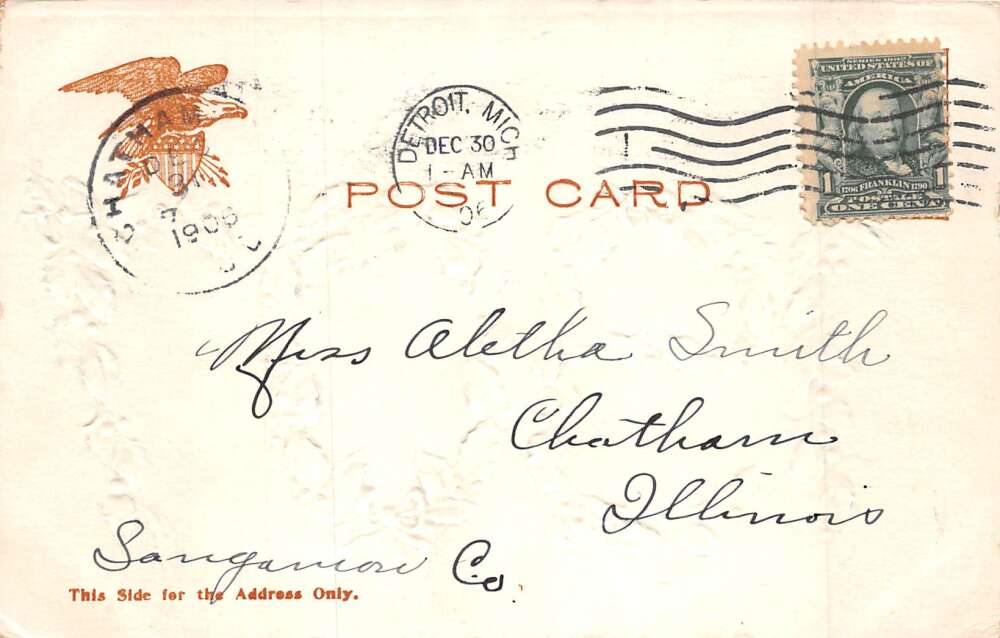 SERIES 1902
UNITED STATES OF
AMERICA
CHATHAM
1906
DETROIT, MICH
DEC 30
1-AM
06
POST CARD
1 1706 FRANKLIN 1790 1
POSTAGE
ONE CENT
Miss Aletha Smith
Chatham
Illinois
Sangamon Co.
This Side for the Address Only.